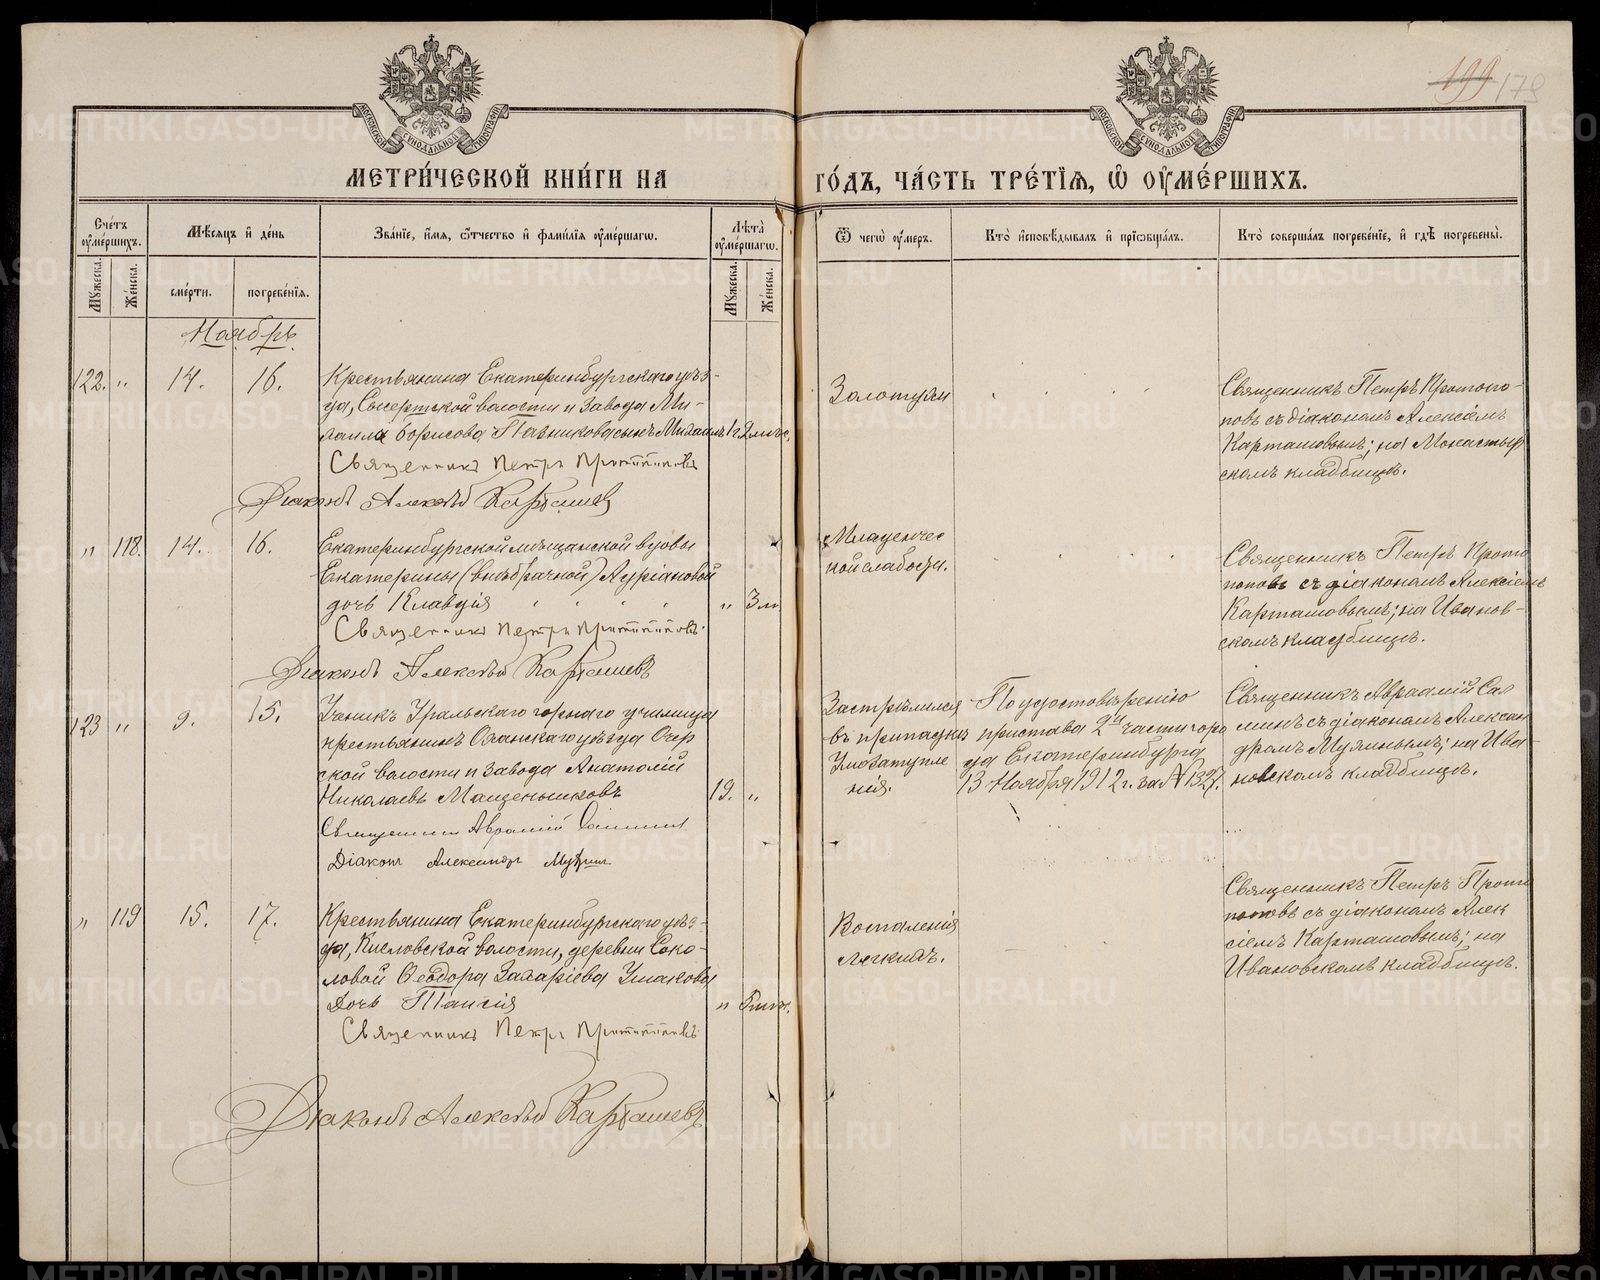 199 178
МОСКОВСКОЙ СѴНОДАЛЬНОЙ ТИПОГРАФІИ
МОСКОВСКОЙ СѴНОДАЛЬНОЙ ТИПОГРАФІИ
МЕТРИ́ЧЕСКОЙ КНИ́ГИ НА ГО́ДЪ, ЧА́СТЬ ТРЕ́ТІѦ, Ѡ҆ ОУ҆МЕ́РШИХЪ.
Сче́тъ оу҆ме́ршихъ.
Мꙋ́жеска.
Же́нска.
Мѣ́сяцъ и҆ де́нь
сме́рти.
погребе́нїѧ.
Зва́нїе, и҆́мѧ, ѻ҆́тчество и҆ фами́лїѧ оу҆ме́ршагѡ.
Лѣ́та оу҆ме́ршагѡ.
Мꙋ́жеска.
Же́нска.
Ѿ чегѡ̀ оу҆́меръ.
Кто̀ и҆сповѣ́дывалъ и҆ прїѡбща́лъ.
Кто̀ соверша́лъ погребе́нїе, и҆ гдѣ̀ погребены̀.
Ноябрь
122. " 14. 16.
Крестьянина Екатеринбургскаго уѣз-
да, Сысертской волости и завода Ми-
хаила Борисова сынъ Михаилъ 1 г. 2 мѣс.
Священникъ Петръ Протопоповъ
Діаконъ Алексѣй Карташевъ
Золотухи
Священникъ Петръ Протопо-
повъ съ діакономъ Алексѣемъ
Карташовымъ; на Монастыр
скомъ кладбищѣ.
" 118. 14. 16.
Екатеринбургской мѣщанской вдовы
Екатерины (внѣбрачной) Адріановой
дочь Клавдія " 3 м.
Священникъ Петръ Протопоповъ
Діаконъ Алексѣй Карташевъ
Младенчес
кой слабости.
Священникъ Петръ Прото
поповъ съ діакономъ Алексіемъ
Карташовымъ; на Иванов-
скомъ кладбищѣ.
123 " 9. 15.
Ученикъ Уральскаго горнаго училища
крестьянинъ Оханскаго уѣзда Очер
ской волости и завода Анатолій
Николаевъ 19. "
Священникъ Авраамій
Діаконъ Александръ
Застрѣлился
въ припадкѣ
Умозатупле
нія.
По удостовѣренію
пристава 2й части горо
да Екатеринбурга
13 Ноября 1912 г. за №
Священникъ Авраамій Сал
минъ съ діакономъ Алексан
дромъ на Ива
новскомъ кладбищѣ.
" 119 15. 17.
Крестьянина Екатеринбургскаго уѣз-
да, Кисловской волости, деревни Соко-
ловой Ѳеодора Захаріева Ушакова
дочь Таисія "
Священникъ Петръ Протопоповъ
Діаконъ Алексѣй Карташевъ
Воспаленія
легкихъ.
Священникъ Петръ Прото
поповъ съ діакономъ Алек
сіемъ Карташовымъ; на
Ивановскомъ кладбищѣ.
METRIKI.GASO-URAL.RU